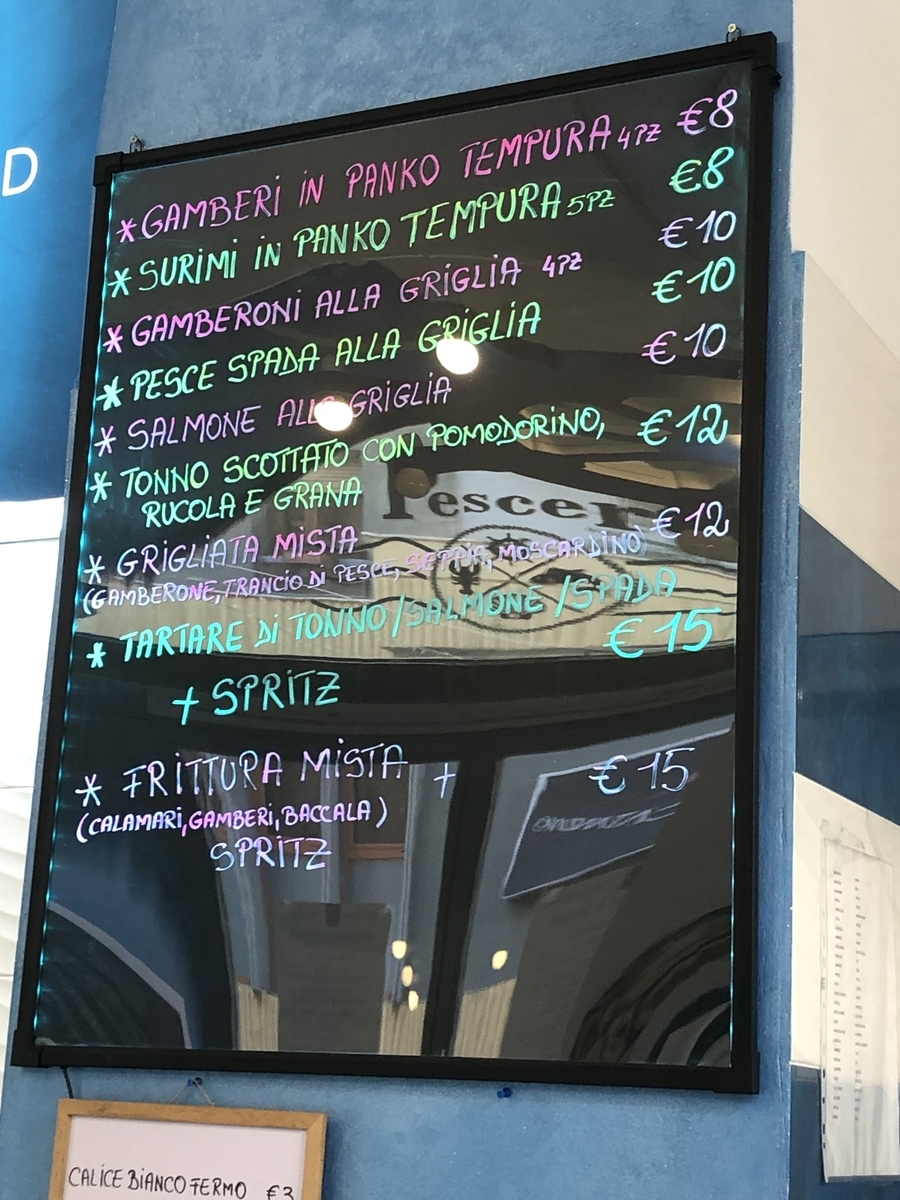 D
* GAMBERI IN PANKO TEMPURA 4PZ €8
* SURIMI IN PANKO TEMPURA 5PZ €8
* GAMBERONI ALLA GRIGLIA 4PZ €10
* PESCE SPADA ALLA GRIGLIA €10
* SALMONE ALLA GRIGLIA €10
* TONNO SCOTTATO CON POMODORINO, €12
RUCOLA E GRANA
* GRIGLIATA MISTA €12
(GAMBERONE, TRANCIO DI PESCE, SEPPIA, MOSCARDINO)
* TARTARE DI TONNO/SALMONE/SPADA
€15
+ SPRITZ
* FRITTURA MISTA + €15
(CALAMARI, GAMBERI, BACCALA)
SPRITZ
CALICE BIANCO FERMO €3